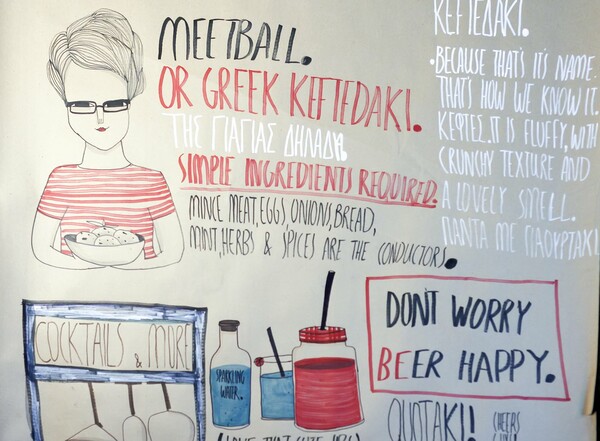 MEETBALL.
OR GREEK KEFTEDAKI.
ΤΗΣ ΓΙΑΓΙΑΣ ΔΗΛΑΔΗ.
SIMPLE INGREDIENTS REQUIRED.
MINCE MEAT,EGGS,ONIONS,BREAD,
MINT,HERBS & SPICES ARE THE CONDUCTORS.
KEFTEDAKI.
•BECAUSE THAT'S IT'S NAME.
THAT'S HOW WE KNOW IT.
ΚΕΦΤΕΣ.IT IS FLUFFY, WITH
CRUNCHY TEXTURE AND
A LOVELY SMELL.
ΠΑΝΤΑ ΜΕ ΓΙΑΟΥΡΤΑΚΙ
COCKTAILS & MORE
SPARKLING
WATER.
DON'T WORRY
BEER HAPPY.
QUOTAKI!
CHEERS